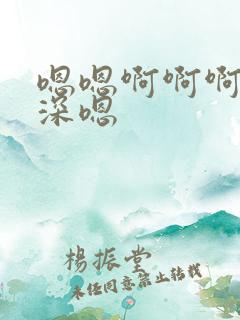 嗯嗯啊啊啊
深嗯
楊振堂
未经同意禁止转载